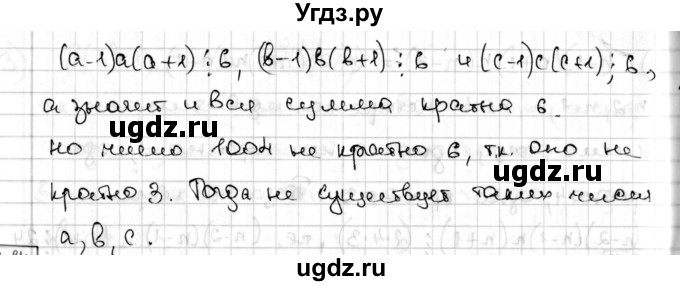 Угдз.ру
(a-1)a(a+1)⋮6, (b-1)b(b+1)⋮6 и (c-1)c(c+1)⋮6,
а значит и вся сумма кратна 6.
но число 1004 не кратно 6, т.к. оно не
кратно 3. Тогда не существует таких чисел
a, b, c.
ugdz.ru
ugdz.ru
ugdz.ru
ugdz.ru